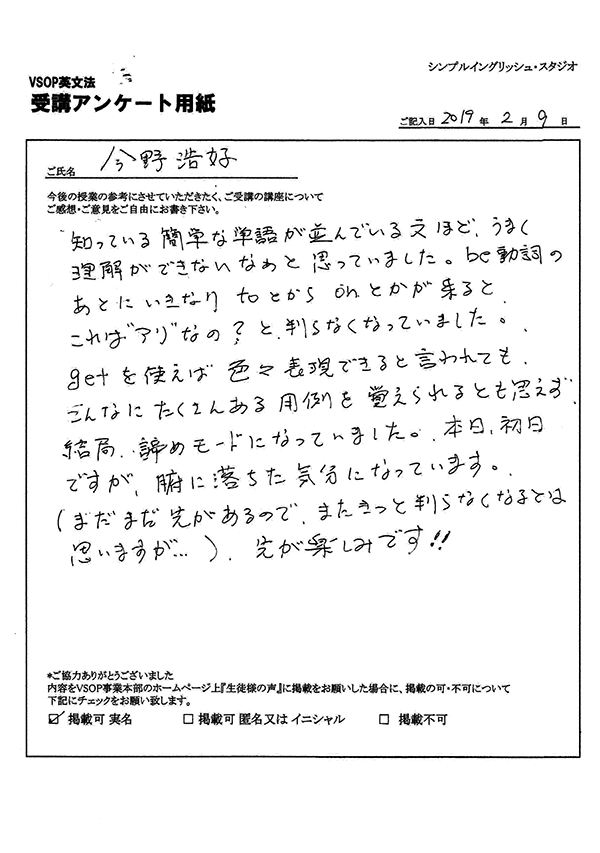 シンプルイングリッシュ・スタジオ
VSOP英文法
受講アンケート用紙
ご記入日 2019 年 2 月 9 日
ご氏名 今野浩好
今後の授業の参考にさせていただきたく、ご受講の講座について
ご感想・ご意見をご自由にお書き下さい。
知っている簡単な単語が並んでいる文ほど、うまく
理解ができないなあと思っていました。be動詞の
あとにいきなり toとから onとかが来ると、
これは"アリ"なの？と、判らなくなっていました。
getを使えば色々表現できると言われても、
こんなにたくさんある用例を覚えられるとも思えず、
結局、諦めモードになっていました。本日、初日
ですが、腑に落ちた気分になっています。
(まだまだ先があるので、またきっと判らなくなるとは
思いますが…)、先が楽しみです!!
*ご協力ありがとうございました
内容をVSOP事業本部のホームページ上『生徒様の声』に掲載をお願いした場合に、掲載の可・不可について
下記にチェックをお願い致します。
☑ 掲載可 実名 □ 掲載可 匿名又は イニシャル □ 掲載不可